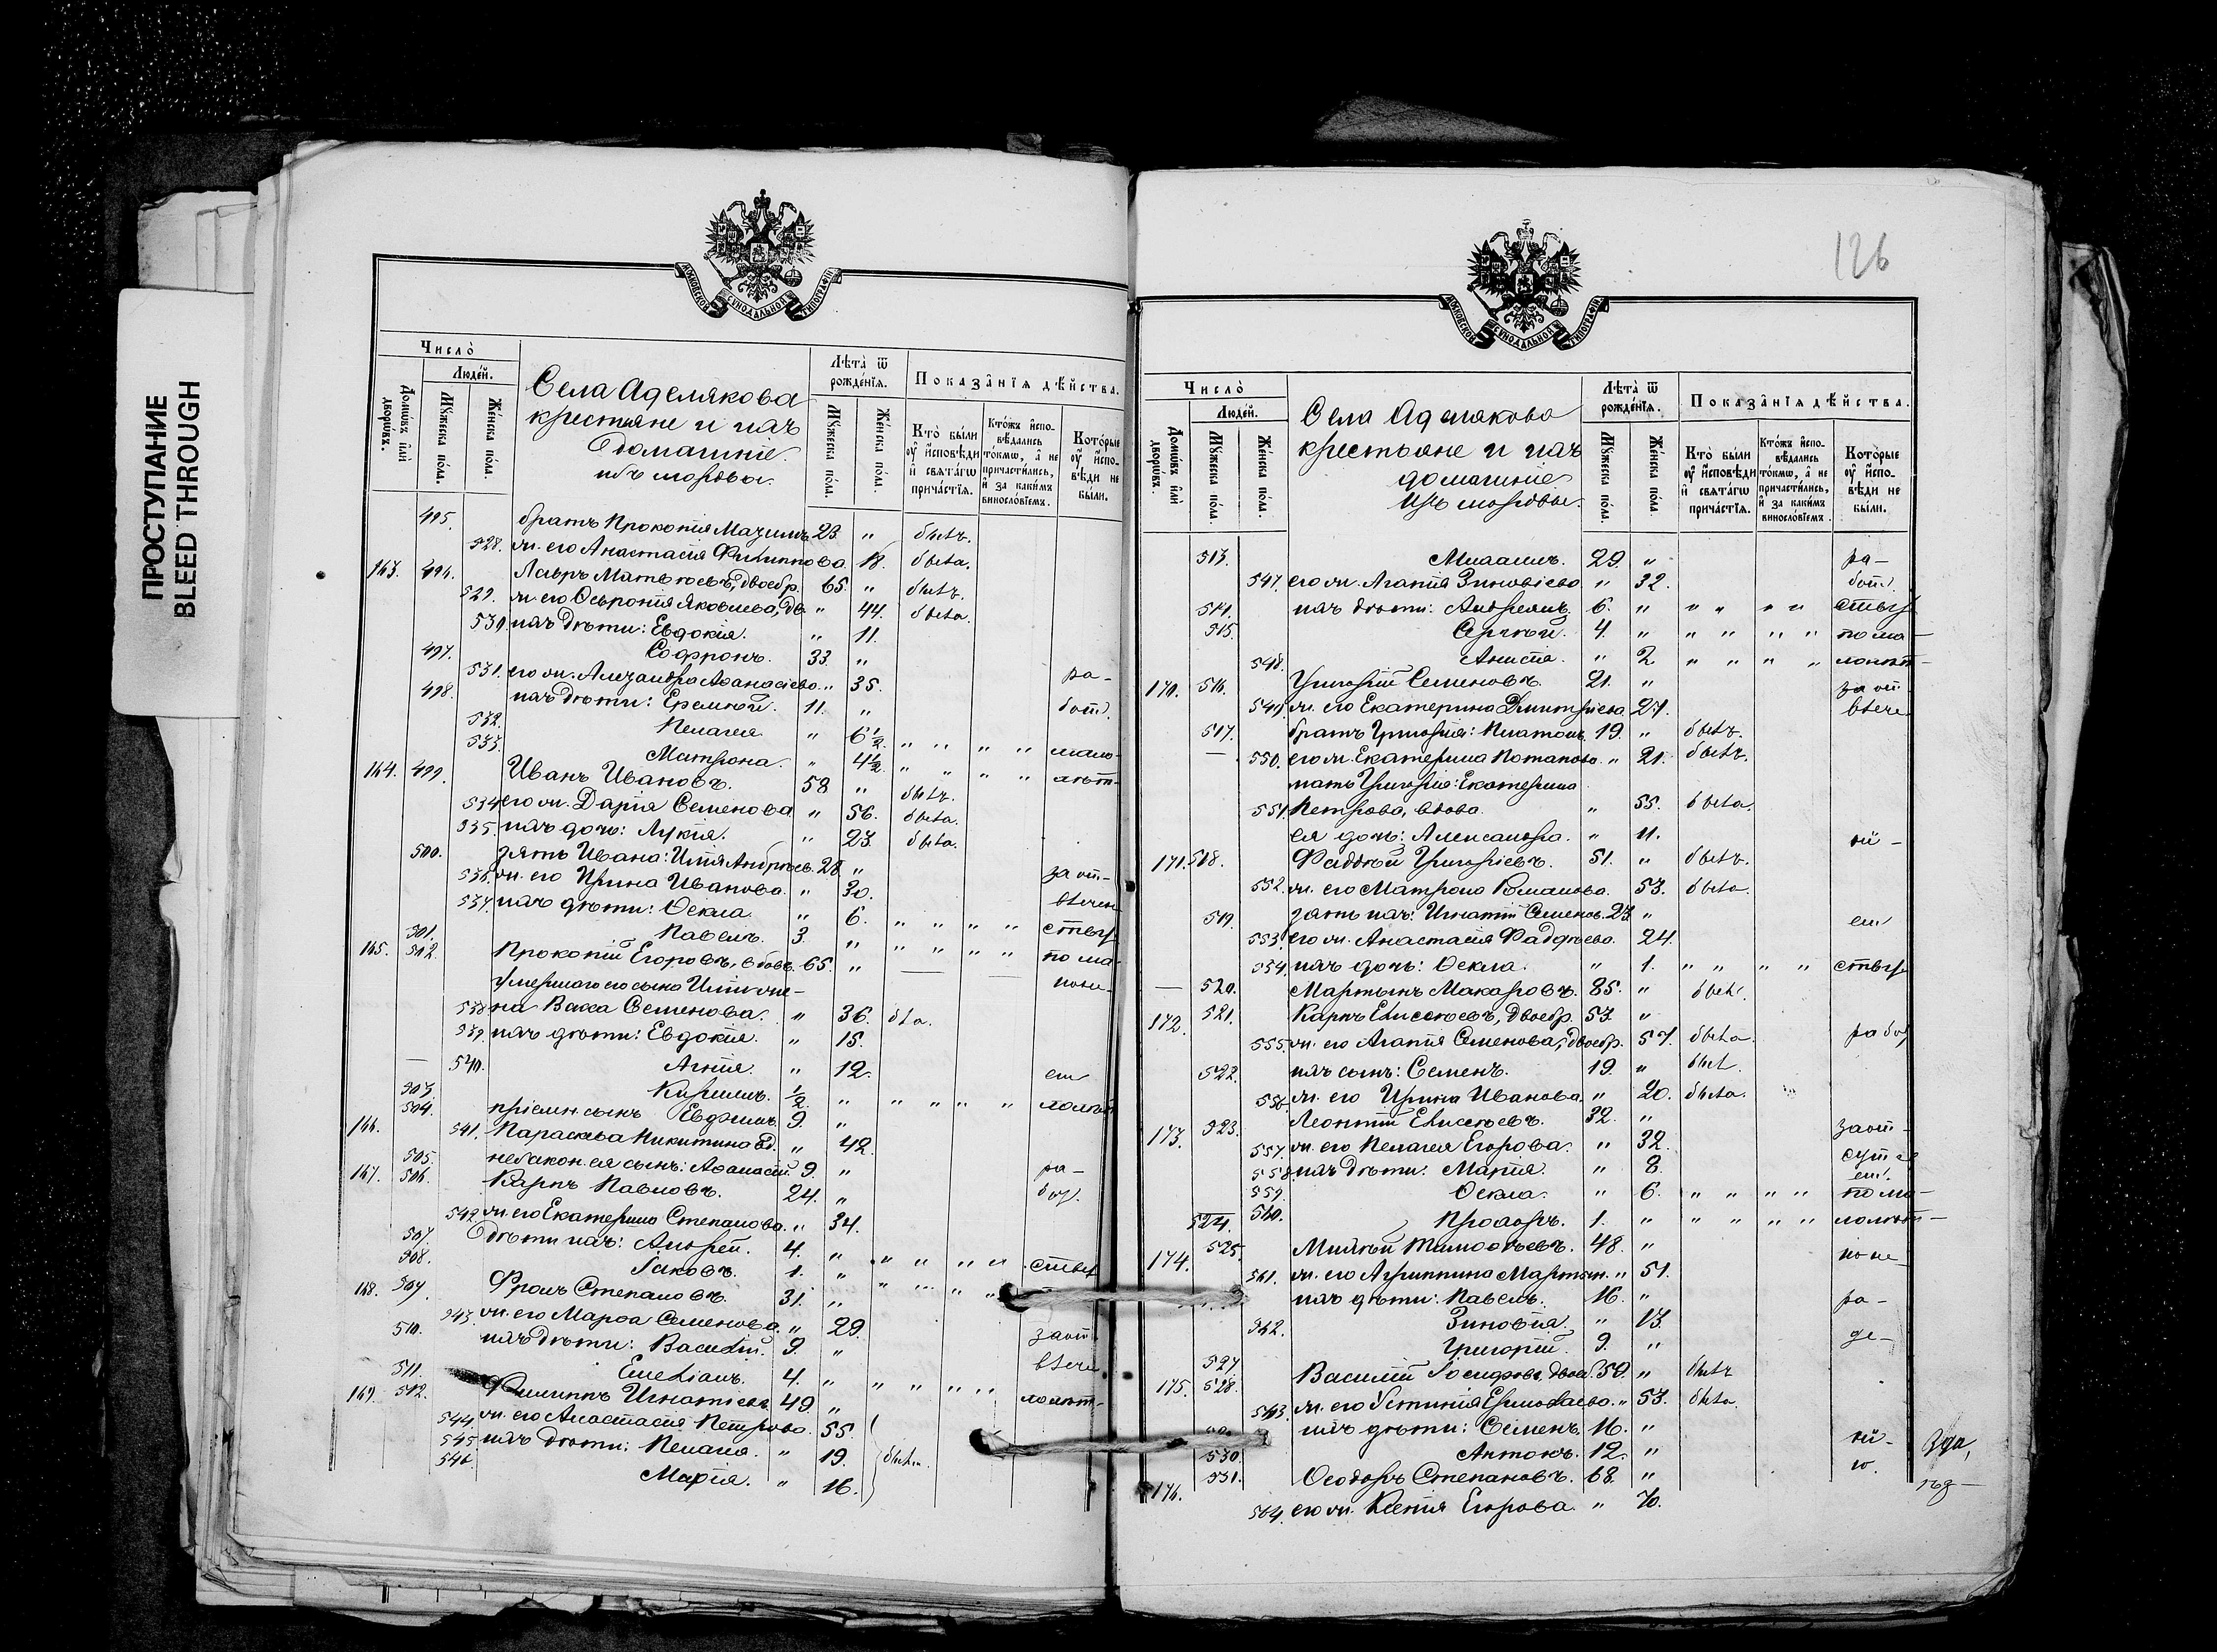 ПРОСТУПАНИЕ
BLEED THROUGH
МОСКОВСКОЙ СѴНОДАЛЬНОЙ ТИПОГРАФІИ
Число̀
Людей.
Домѡвъ и҆лѝ дворѡвъ.
Мꙋ́жеска по́ла.
Же́нска по́ла.
Села Аделякова
крестьяне и ихъ
домашніе
изъ мордвы.
Лѣта̀ ѿ рожде́нїѧ.
Мꙋ́жеска по́ла.
Же́нска по́ла.
Показа̑нїѧ дѣ́йства.
Кто̀ бы́ли ᲂу҆ и҆сповѣ́ди и҆ свѧта́гѡ прича́стїѧ.
Кто́жъ и҆спо-вѣ́дались то́кмѡ, а҆ не причасти́лись, и҆ за каки́мъ винослові́емъ.
Кото́рые ᲂу҆ и҆спо-вѣ́ди не бы́ли.
495. братъ Прокопія Мазимъ 23. " бытъ.
528. ж. его Анастасія Филиппова. 18. быта.
163. 496. Лавръ Матвѣевъ, двоебр. 65. " бытъ.
529. ж. его Ефросія Яковлева, дв. " 44. быта.
530. ихъ дѣти: Евдокія. " 11.
497. Софронъ. 33. "
531. его ж. Александра Аѳанасіева. " 35. ра-
498. ихъ дѣти: Еремѣй. 11. " бот.
532. Пелагея. " 6½. " " " " мало-
533. Матрона. " 4½. " " " " лѣт-
164. 499. Иванъ Ивановъ. 58 " бытъ.
534. его ж. Дарія Семенова " 56. быта.
535. ихъ дочь: Лукія. " 23. быта.
500. зять Ивана: Илія Андреев. 28. " за от-
536. ж. его Ирина Иванова. " 30. вѣчен
537. ихъ дѣти: Ѳекла. " 6. " " " " ству
501. Павелъ. 3. " " " " " по ма-
165. 502. Прокопій Егоровъ, вдовъ. 65. "
умершаго его сына Иліи же-
538. на Васса Семенова. " 36. быта.
539. ихъ дѣти: Евдокія. " 15.
540. Агнія. " 12.
503. Кириллъ. ½. " " " " " малолѣт
504. пріемн. сынъ Евфимъ 9. "
166. 541. Параскева Никитина вд. " 42.
505. незакон. ея сынъ: Аѳанасій. 9. " ра-
167. 506. Карпъ Павловъ. 24. " бот.
542. ж. его Екатерина Степанова. " 34.
507. Дѣти ихъ: Андрей. 4. " " " " " ству
508. Іаковъ. 1. " " " " "
168. 509. Фролъ Степановъ. 31. "
543. ж. его Марѳа Семенова. " 29. за от
510. ихъ дѣти: Василій. 9. " вѣче
511. Емеліанъ. 4. " " " " " лолѣт-
169. 512. Филиппъ Игнатіевъ 49. "
544. ж. его Анастасія Петрова. 55.
545. ихъ дѣти: Пелагія. " 19. быта.
546. Марія. " 16.
126
МОСКОВСКОЙ СѴНОДАЛЬНОЙ ТИПОГРАФІИ
Число̀
Людей.
Домѡвъ и҆лѝ дворѡвъ.
Мꙋ́жеска по́ла.
Же́нска по́ла.
Села Аделякова
крестьяне и ихъ
домашніе
изъ мордвы.
Лѣта̀ ѿ рожде́нїѧ.
Мꙋ́жеска по́ла.
Же́нска по́ла.
Показа̑нїѧ дѣ́йства.
Кто̀ бы́ли ᲂу҆ и҆сповѣ́ди и҆ свѧта́гѡ прича́стїѧ.
Кто́жъ и҆спо-вѣ́дались то́кмѡ, а҆ не причасти́лись, и҆ за каки́мъ винослові́емъ.
Кото́рые ᲂу҆ и҆спо-вѣ́ди не бы́ли.
513. Михаилъ. 29. " ра-
547. его ж. Агапія Зиновіева " 32. бот.
514. ихъ дѣти: Андреянъ. 6. " " " " " ству
515. Сергѣй. 4. " " " " " по ма-
548. Анисія. " 2. " " " " лолѣт-
170. 516. Григорій Семеновъ. 21. " за от-
549. ж. его Екатерина Димитріева 27. вѣче
517. братъ Григорія: Платонъ. 19. " бытъ.
550. его ж. Екатерина Потапова. " 21. бытъ.
мать Григорія: Екатерина
551. Петрова, вдова. " 55. быта.
ея дочь: Александра. " 11.
171. 518. Фаддѣй Григорьевъ. 51. " бытъ.
552. ж. его Матрона Романова. 53. быта.
519. зять ихъ: Игнатій Семенов. 23. "
553. его ж. Анастасія Фаддѣева. 24.
554. ихъ дочь: Ѳекла. " 1. " " " " ству
520. Мартынъ Макаровъ. 85. " бытъ.
172. 521. Карпъ Елисеевъ, двоебр. 53. "
555. ж. его Агапія Семенова, двоебр. 57. быта. работ
522. ихъ сынъ: Семенъ. 19. " быт.
556. ж. его Ирина Иванова. " 20. быта.
173. 523. Леонтій Елисеевъ. 32. " за от-
557. ж. его Пелагея Егорова. " 32. сутс
558. ихъ дѣти: Марія. " 8.
559. Ѳекла. " 6. " " " " по ма-
524. 560. Прохоръ. 1. " " " " " лолѣт-
174. 525. Михѣй Тимоѳеевъ. 48. " по не-
561. ж. его Агриппина Мартын. " 51.
ихъ дѣти: Павелъ. 16. " ра-
562. Зиновія. " 13.
527 Григорій. 9. " де-
175. 528. Василій Іосифовъ двоеб. 59. " бытъ
563. ж. его Устинія Ермолаева. " 53. быта.
ихъ дѣти: Семенъ. 16. "
530. Антонъ. 12. "
176. 531. Ѳеодоръ Степановъ. 68. "
564. его ж. Ксенія Егорова. " 70.